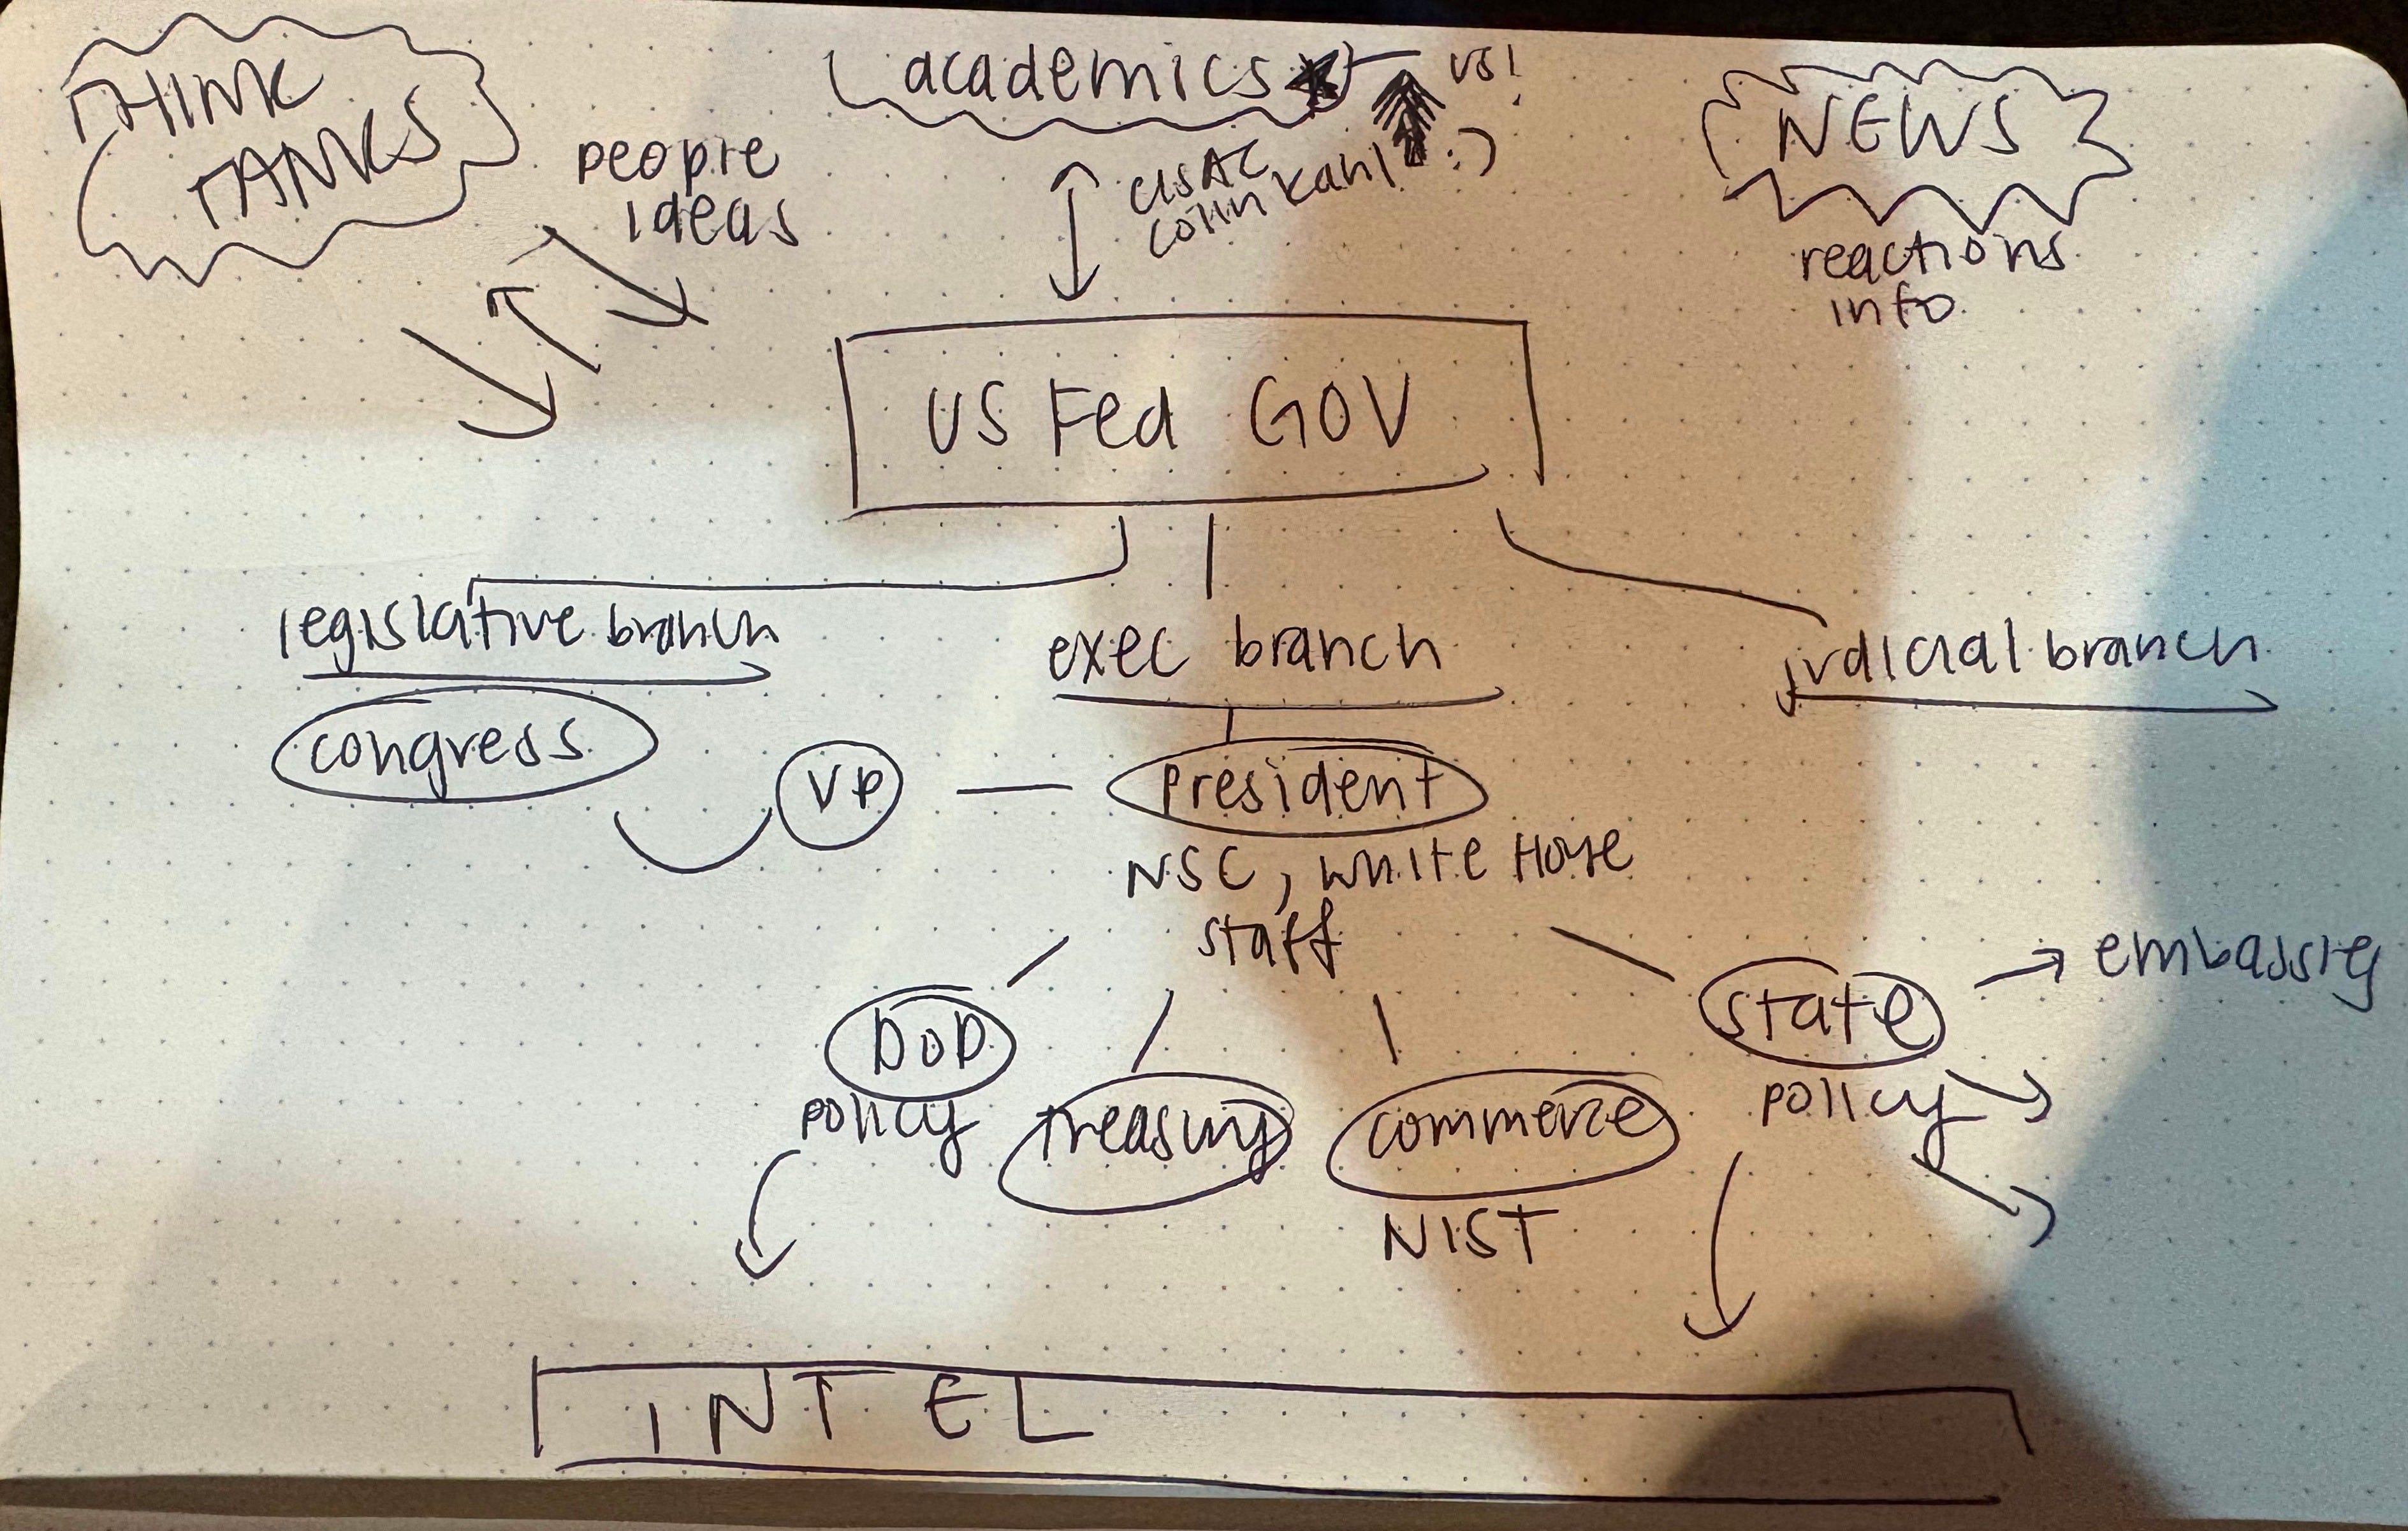 THINK
TANKS
people
ideas
academics
us!
CISAC
Colin Kahl :)
NEWS
reactions
info
US Fed GOV
legislative branch
exec branch
judicial branch
congress
VP
president
NSC, White House
staff
DoD
policy
treasury
commerce
NIST
state
policy
embassies
INTEL